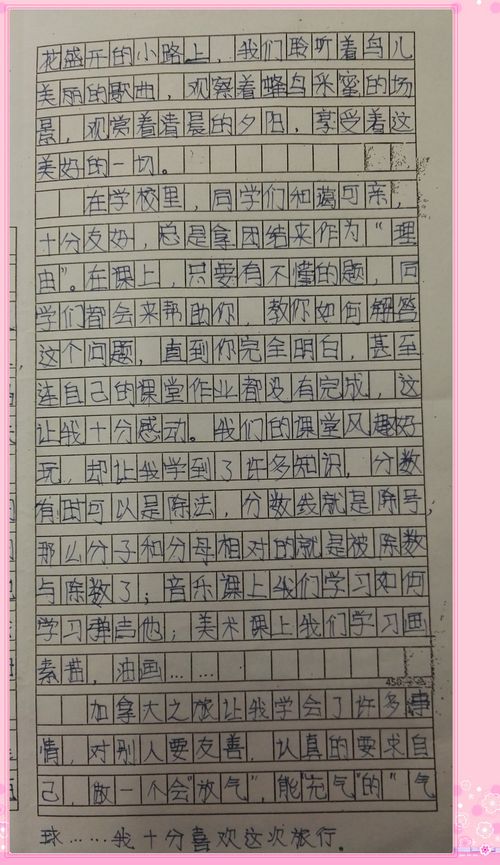 花盛开的小路上，我们聆听着鸟儿
美丽的歌曲，观察着蜂鸟采蜜的场
景，观赏着清晨的夕阳，享受着这
美好的一切。
在学校里，同学们和蔼可亲，
十分友好，总是拿团结来作为“理
由”。在课上，只要有不懂的题，同
学们都会来帮助你，教你如何解答
这个问题，直到你完全明白，甚至
连自己的课堂作业都没有完成，这
让我十分感动。我们的课堂风趣好
玩，却让我学到了许多知识，分数
有时可以是除法，分数线就是除号，
那么分子和分母相对的就是被除数
与除数了；音乐课上我们学习如何
学习弹吉他；美术课上我们学习画
素描，油画……
加拿大之旅让我学会了许多事
情，对别人要友善，认真的要求自
己，做一个会“放气”，能“充气”的“气
球……我十分喜欢这次旅行。